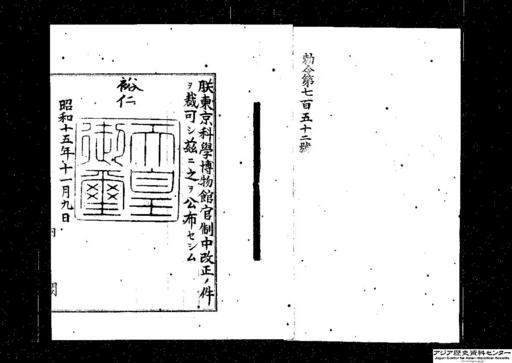 勅令第七百五十二號
朕東京科學博物館官制中改正ノ件
ヲ裁可シ茲ニ之ヲ公布セシム
裕仁
天皇
御璽
昭和十五年十一月九日
内
閣
アジア歴史資料センター
Japan Center for Asian Historical Records